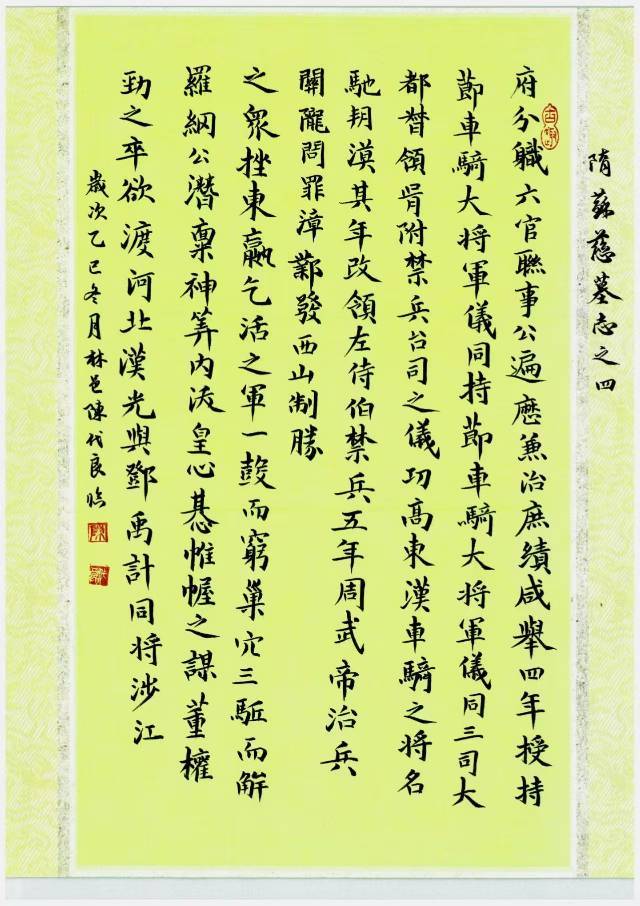 隋蘇慈墓志之四
府分職六官聯事公遍歷兼治庶績咸舉四年授持
節車騎大将軍儀同持節車騎大将軍儀同三司大
都督領胥附禁兵台司之儀功高東漢車騎之将名
馳朔漠其年改領左侍伯禁兵五年周武帝治兵
關隴問罪漳鄴發西山制勝
之眾挫東羸乞活之軍一鼓而窮巢穴三駈而解
羅網公潛稟神筭內沃皇心惎帷幄之謀董權
勁之卒欲渡河北漢光與鄧禹計同将涉江
歲次乙巳冬月林邑陳代良臨